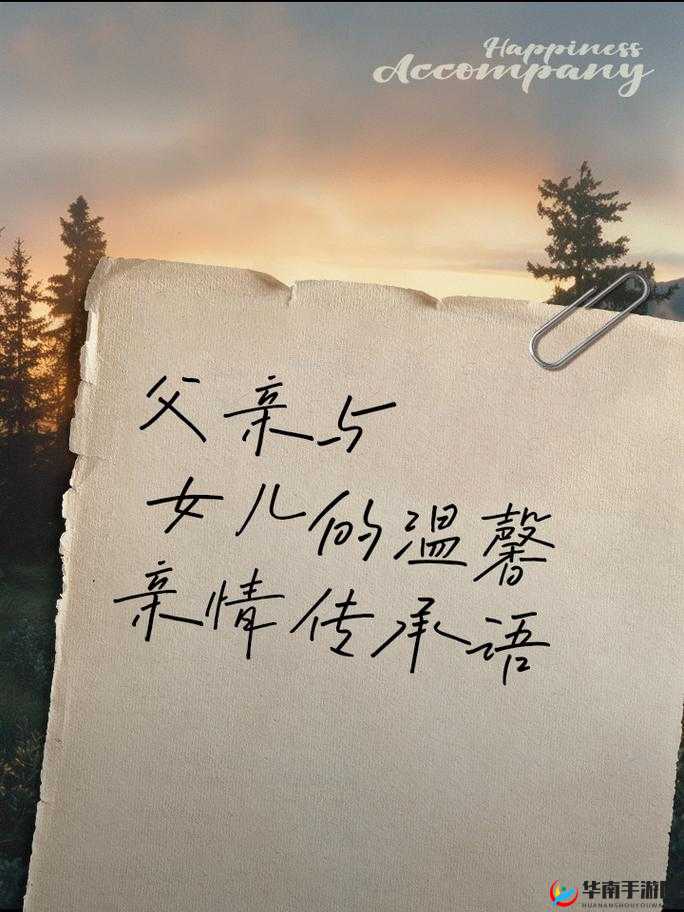 Happiness
Accompany
父亲与
女儿的温馨
亲情传承语
华南手游
HUANANSHOUYOUW